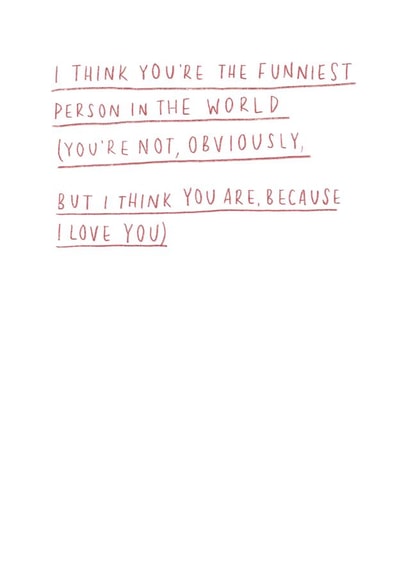 I THINK YOU'RE THE FUNNIEST
PERSON IN THE WORLD
(YOU'RE NOT, OBVIOUSLY,
BUT I THINK YOU ARE, BECAUSE
I LOVE YOU)